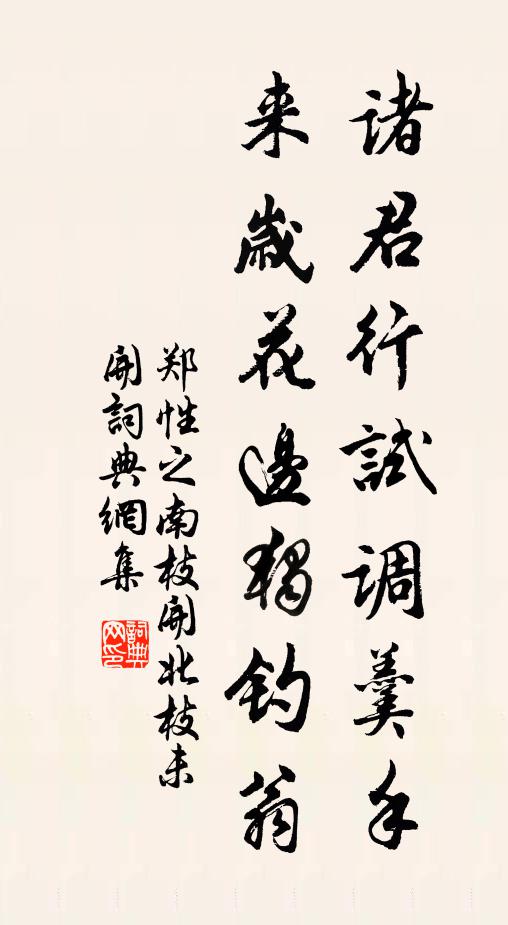 諸君行試調羹手
来歲花邊獨釣翁
郑性之南枝開北枝未
開詞典網集
詞典网印